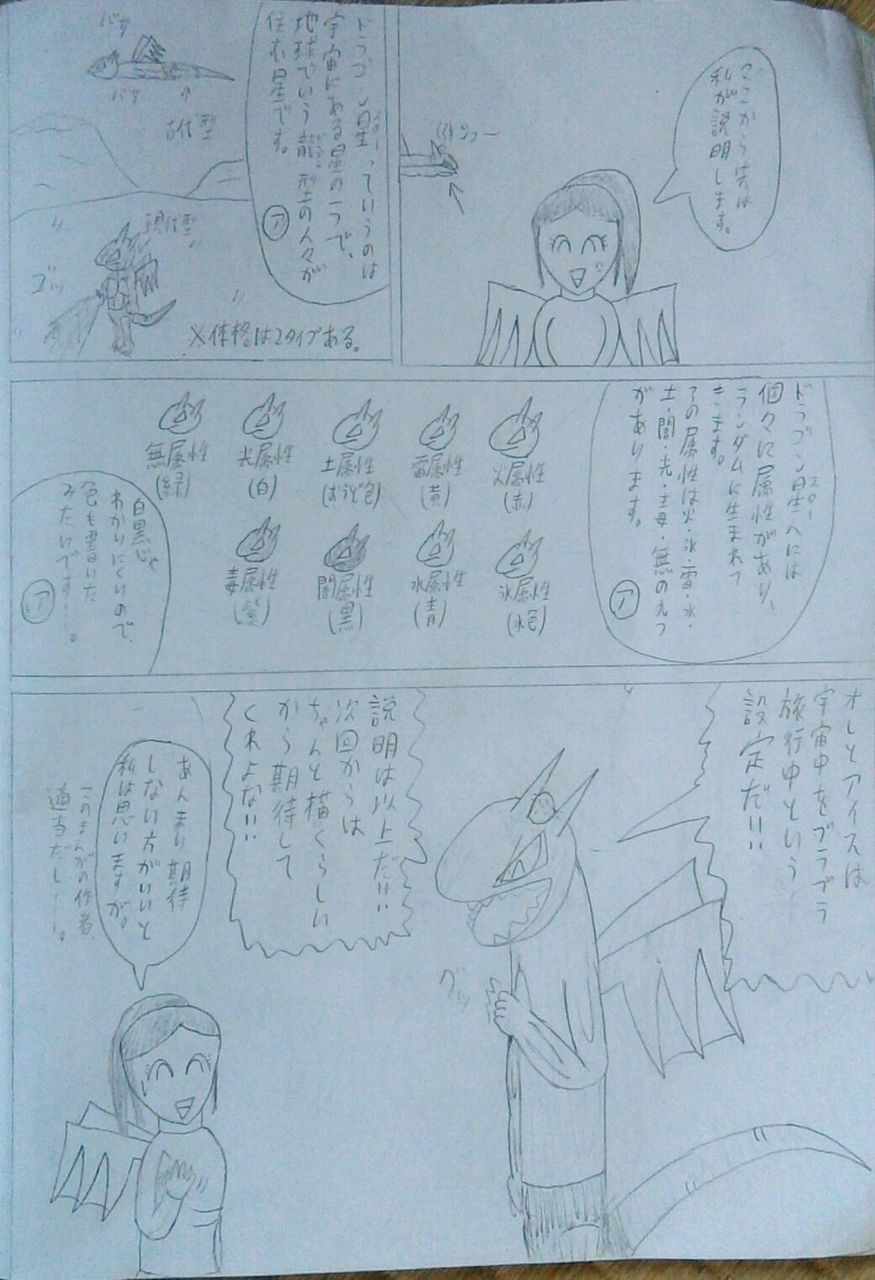 ここから先は
私が説明します。
シュー
ドラゴン星っていうのは
スター
宇宙にある星の一つで、
地球でいう龍型の人々が
住む星です。
ア
バサ
バサ
古代型
現代型
ゴッ
※体格は2タイプある。
ドラゴン星人には
スター
個々に属性があり、
ランダムに生まれて
きます。
その属性は火・氷・雷・水・
土・闇・光・毒・無の九つ
があります。
ア
火属性
(赤)
雷属性
(黄)
土属性
(おうど色)
光属性
(白)
無属性
(緑)
氷属性
(水色)
水属性
(青)
闇属性
(黒)
毒属性
(紫)
白黒じゃ
わかりにくいので、
色も書いた
みたいです…。
ア
オレとアイスは
宇宙中をブラブラ
旅行中という
設定だ!!
説明は以上だ!!
次回からは
ちゃんと描くらしい
から期待して
くれよな!!
グッ
あんまり期待
しない方がいいと
私は思いますが。
このまんがの作者、
適当だし…。